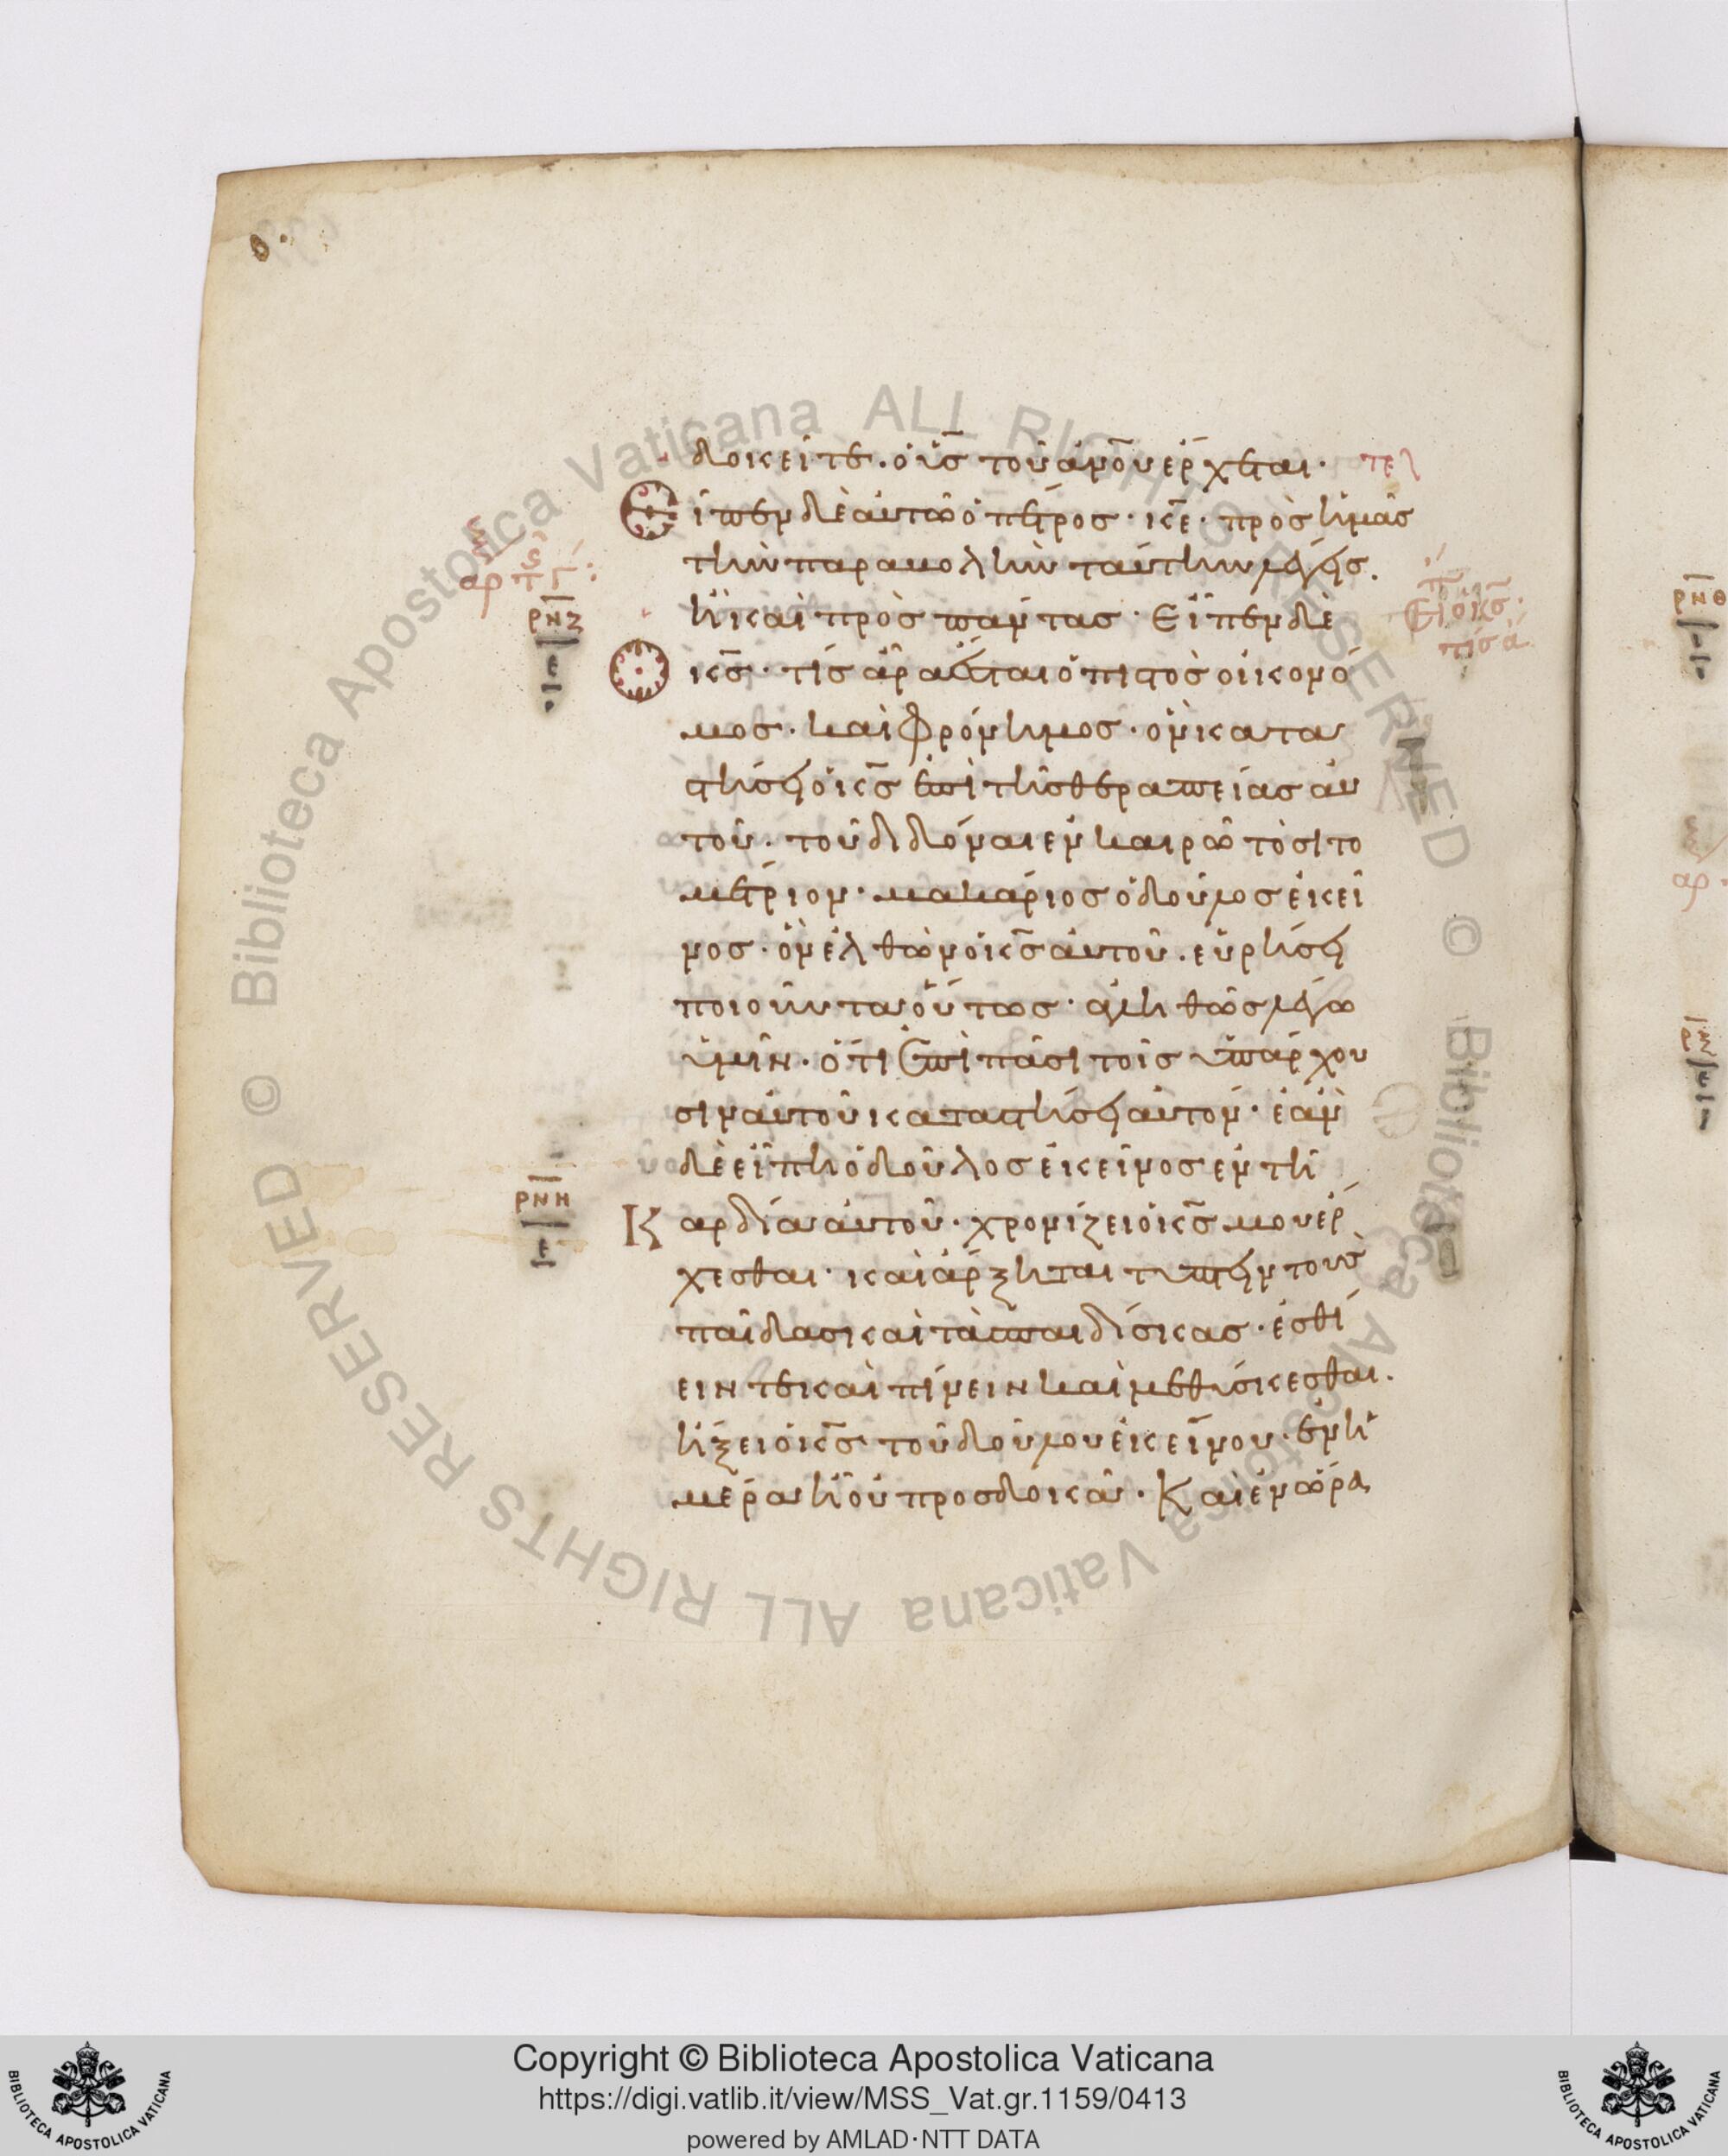 δοκεῖτε. ὁ υ̅ς̅ τοῦ ἀν̅ο̅υ ἔρχεται· τελ
Εἶπεν δὲ αὐτῶ ὁ πέτρος· κ̅ε̅· πρὸς ἡμᾶς
τὴν παραβολὴν ταύτην λέγεις.
ἢ καὶ πρὸς πάντας· Εἶπεν δὲ
ὁ κ̅ς̅· τίς ἄρα ἐσται ὁ πιστὸς οἰκονό
μος· καὶ φρόνημος· ὃν κατα
στήσει ὁ κ̅ς̅ ἐπὶ τῆς θεραπείας αὐ
τοῦ· τοῦ διδόναι ἐν καιρῶ τὸ σιτο
μέτριον· μακάριος ὁ δοῦλος ἐκεῖ
νος· ὃν ἐλθὼν ὁ κ̅ς̅ αὐτοῦ. εὑρήσει
ποιοῦντα οὕτως· ἀληθῶς λέγω
ὑμῖν· ὅτι ἐπὶ πᾶσι τοῖς ὑπάρχου
σιν αὐτοῦ καταστήσει αὐτόν· ἐὰν
δὲ εἴπη ὁ δοῦλος ἐκεῖνος ἐν τῆ
Καρδία αὐτοῦ· χρονίζει ὁ κ̅ς̅ μου ἔρ
χεσθαι· καὶ ἄρξηται τύπτειν τοὺς
παῖδας καὶ τὰς παιδίσκας· ἐσθί
ειν τε καὶ πίνειν καὶ μεθύσκεσθαι.
ἥξει ὁ κ̅ς̅ τοῦ δούλου ἐκείνου· ἐν ἡ
μέρα ἧ οὐ προσδοκᾶ· Καὶ ἐν ὥρα
ΡΝΖ
ΡΝΗ
ε
ΡΝΘ
Copyright © Biblioteca Apostolica Vaticana
https://digi.vatlib.it/view/MSS_Vat.gr.1159/0413
powered by AMLAD·NTT DATA
BIBLIOTECA APOSTOLICA VATICANA
BIBLIOTECA APOSTOLICA VATICANA
© Biblioteca Apostolica Vaticana ALL RIGHTS RESERVED © Biblioteca Apostolica Vaticana ALL RIGHTS RESERVED